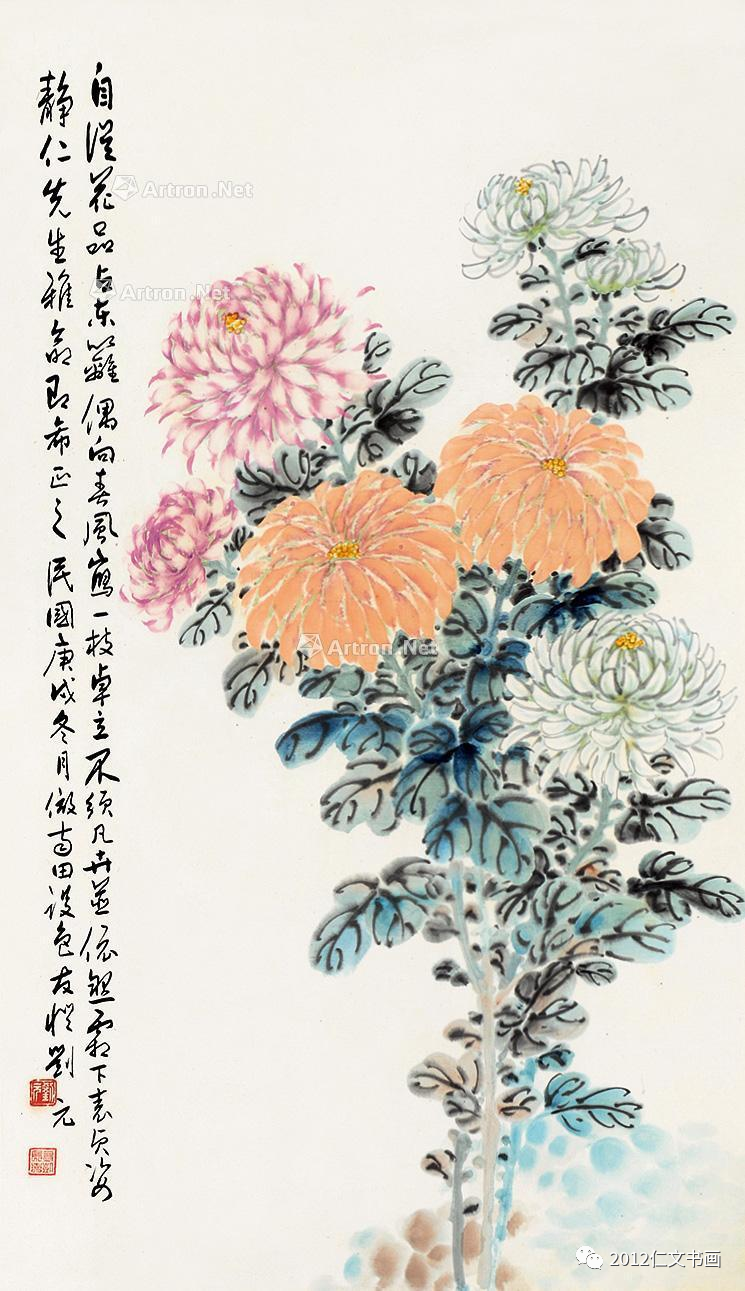 自從花品占东籬偶向春風寫一枝卓立不須凡卉並依然霜下表貞姿
静仁先生雅命即希正之民國庚戌冬月倣南田設色友劉元
Artron.Net
Artron.Net
Artron.Net
2012仁文书画